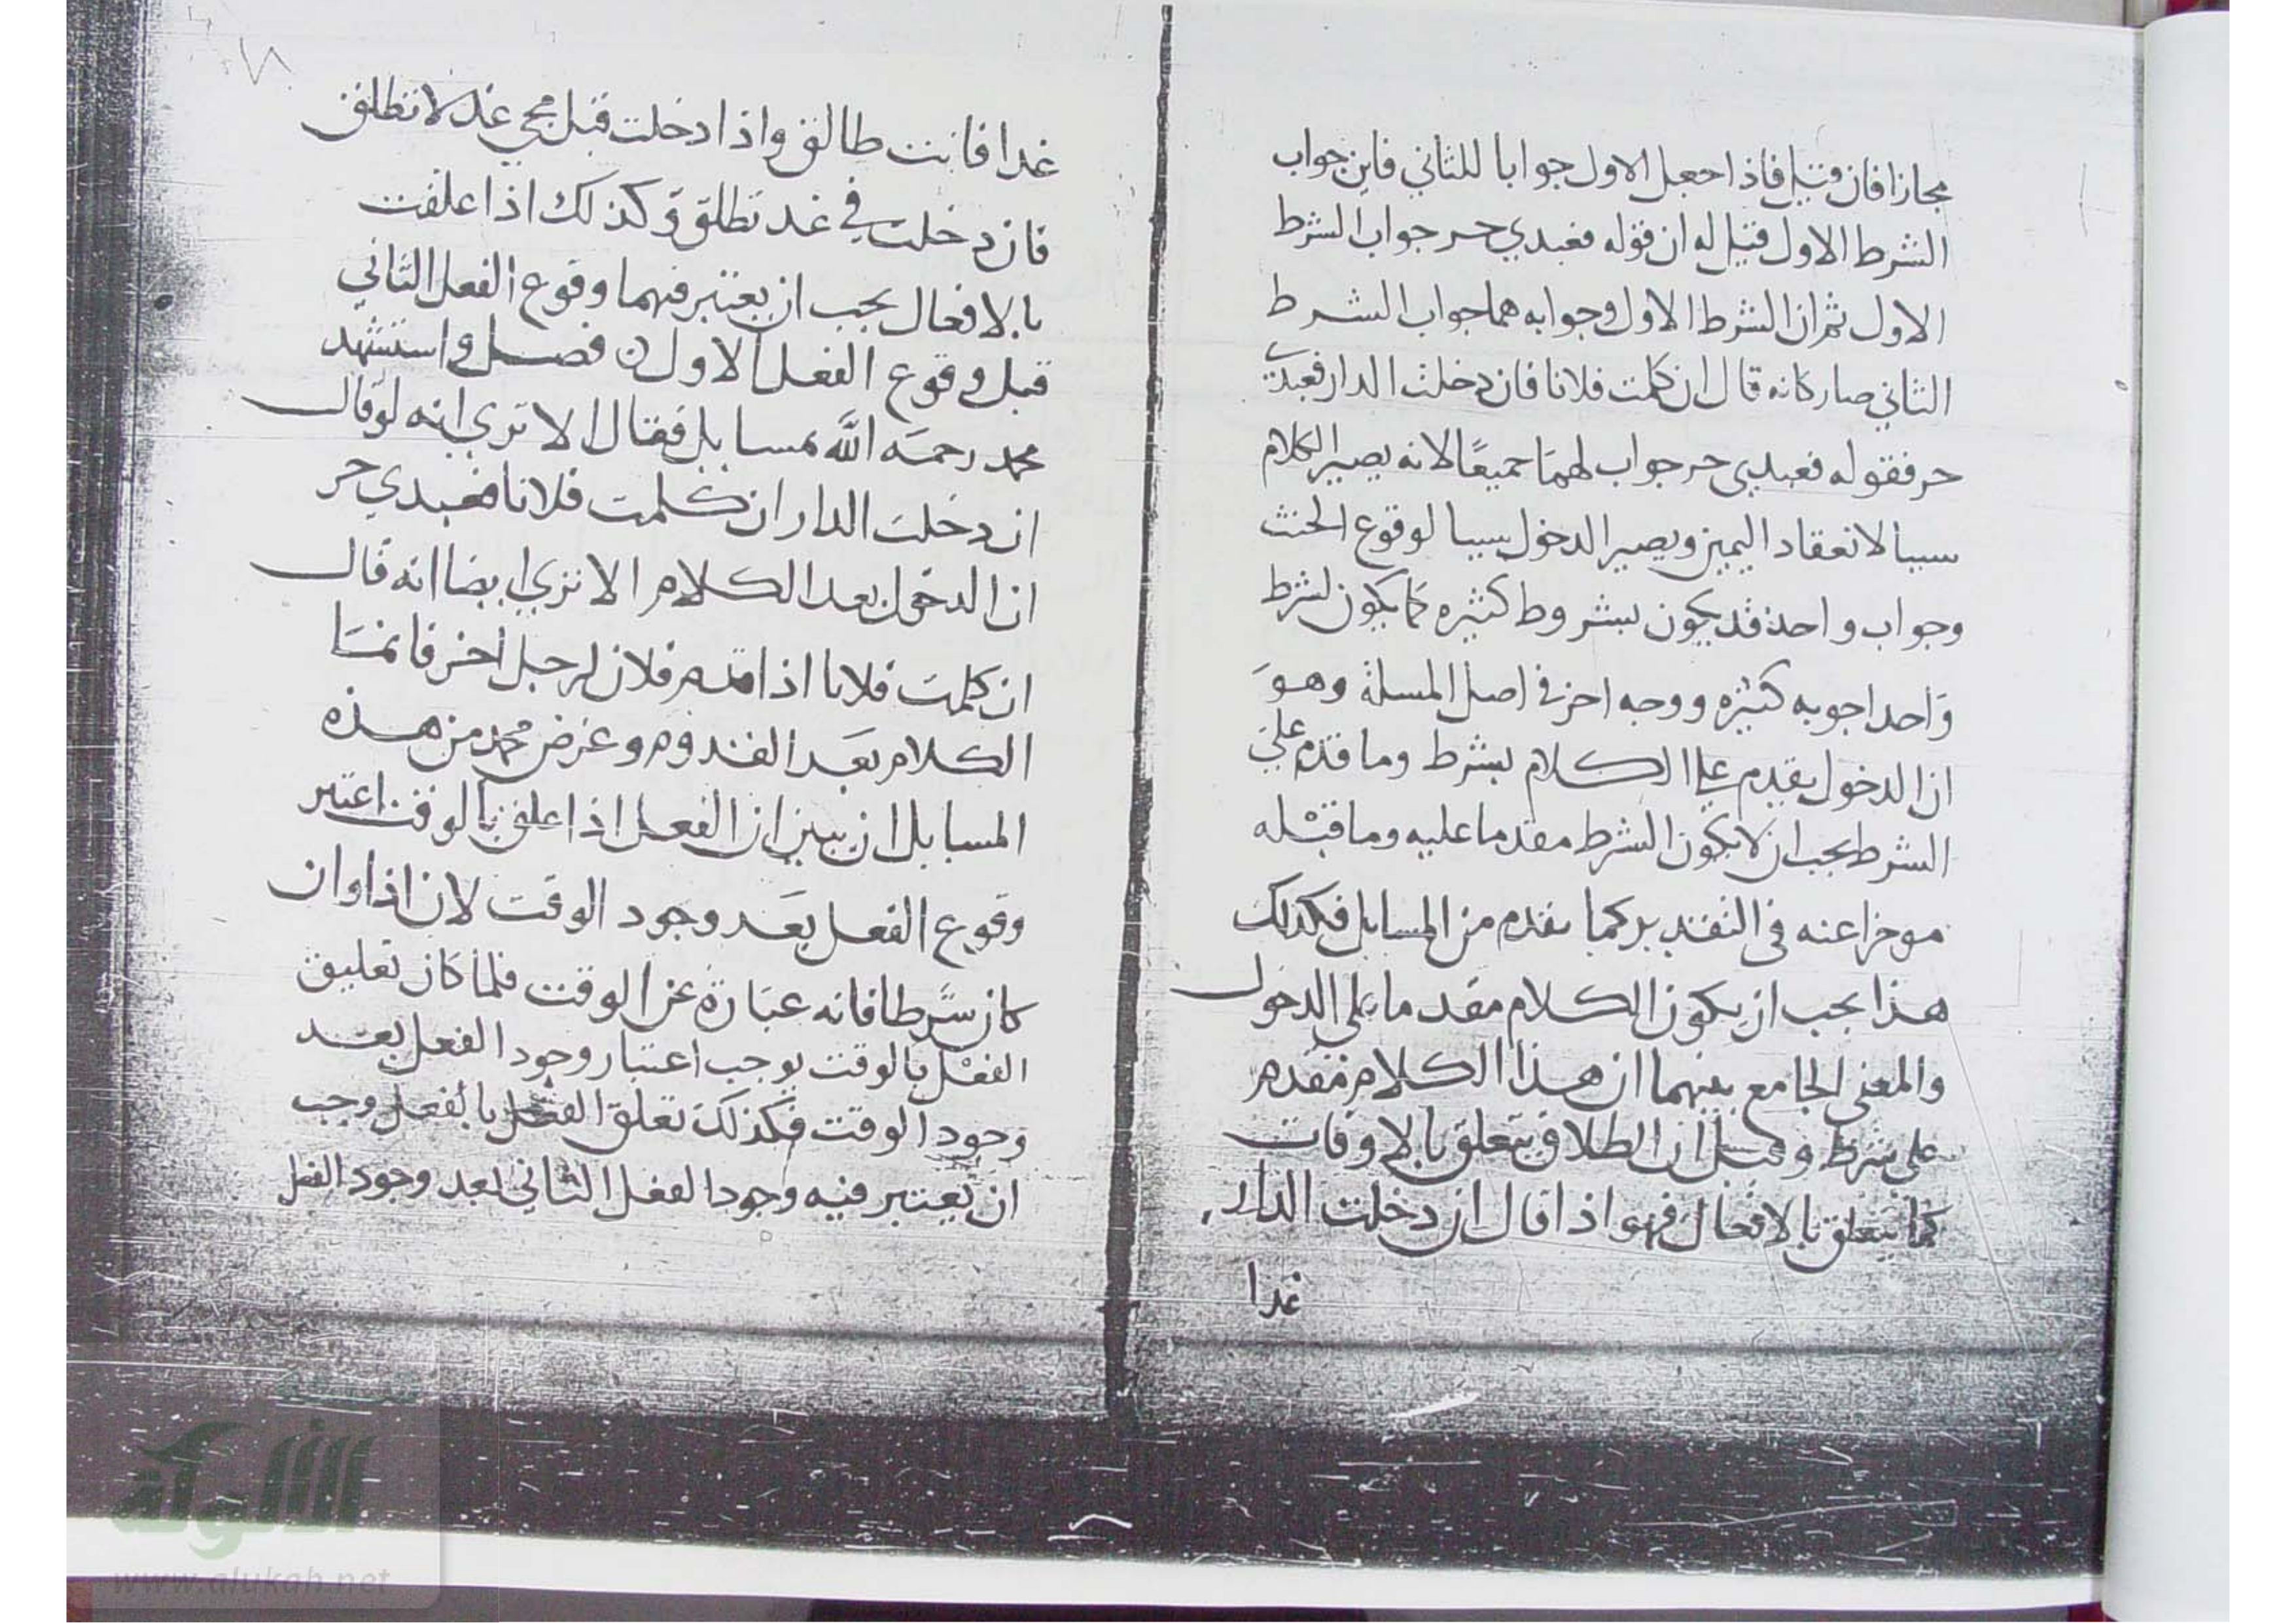 مجازا فان قيل فاذا جعل الاول جوابا للثاني فاين جواب
الشرط الاول قيل له ان قوله فعبدي حر جواب الشرط
الاول ثم ان الشرط الاول وجوابه هما جواب الشرط
الثاني صار كانه قال ان كلمت فلانا فان دخلت الدار فعبدي
حر فقوله فعبدي حر جواب لهما جميعًا لانه يصير الكلام
سببا لانعقاد اليمين ويصير الدخول سببا لوقوع الحنث
وجواب واحد قد يكون بشروط كثيره كما يكون لشرط
واحد اجوبه كثيره ووجه اخر في اصل المسلة وهو
ان الدخول يقدم علي الكلام بشرط وما قدم علي
الشرط يجب ان لا يكون الشرط مقدما عليه وما قبله
موخرا عنه في التقدير كما تقدم من المسايل فكذلك
هذا يجب ان يكون الكلام مقدما علي الدخول
والمعني الجامع بينهما ان هذا الكلام مقدم
علي شرط وقيل ان الطلاق يتعلق بالاوقات
كما يتعلق بالافعال فهو اذا قال ان دخلت الدار
غدا
غدا فانت طالق واذا دخلت قبل مجي غد لا تطلق
فان دخلت في غد تطلق وكذلك اذا علقت
بالافعال يجب ان يعتبر فيهما وقوع الفعل الثاني
قبل وقوع الفعل الاول فصل واستشهد
محمد رحمه الله بمسايل فقال الا تري انه لو قال
ان دخلت الدار ان كلمت فلانا فعبدي حر
ان الدخول بعد الكلام الا تري ايضا انه قال
ان كلمت فلانا اذا قدم فلان لرجل اخر فانما
الكلام بعد القدوم وغرض محمد من هذه
المسايل ان يبين ان الفعل اذا علق بالوقت اعتبر
وقوع الفعل بعد وجود الوقت لان اذا وان
كان شرطا فانه عبارة عن الوقت فلما كان تعليق
الفعل بالوقت يوجب اعتبار وجود الفعل بعد
وجود الوقت فكذلك تعلق الفعل بالفعل وجب
ان يعتبر فيه وجود الفعل الثاني بعد وجود الفعل
الألوكة
www.alukah.net